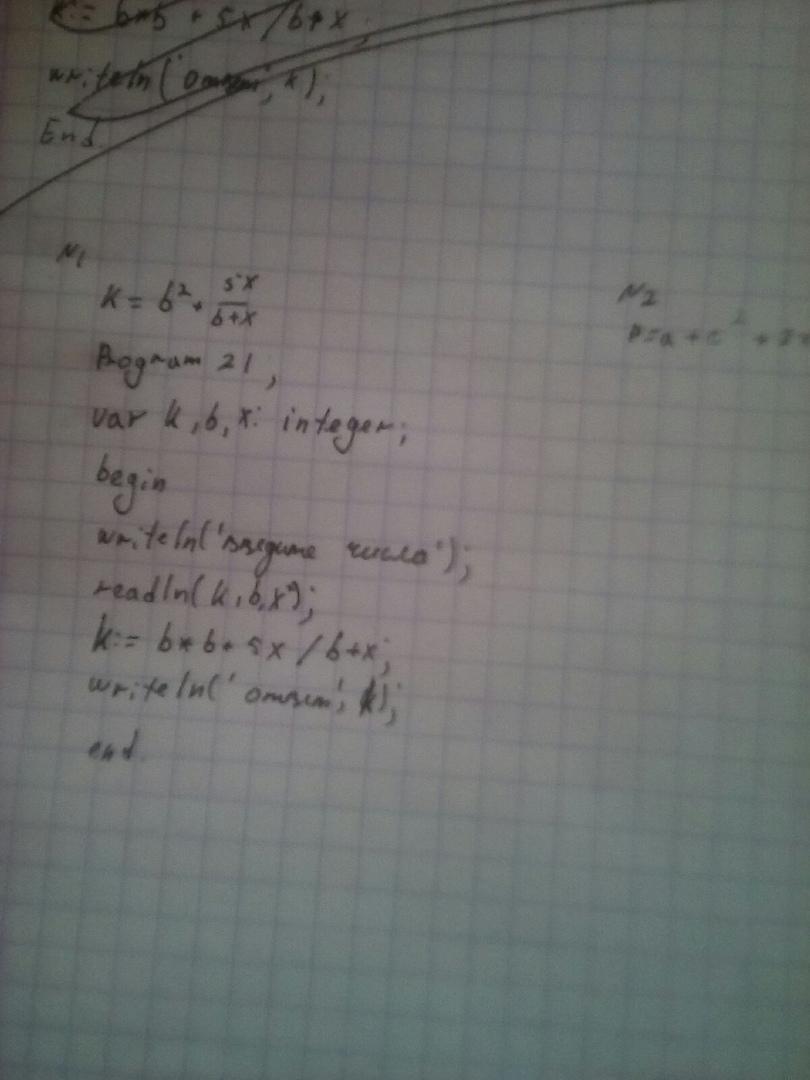 k:= b*b + 5x/b+x;
writeln('ответ', k);
End.
N1
K = b² + 5x
b+x
Program 21;
var k, b, x: integer;
begin
writeln('введите числа');
readln(k, b, x);
k:= b*b+ 5x/b+x;
writeln('ответ', k);
end.
N2